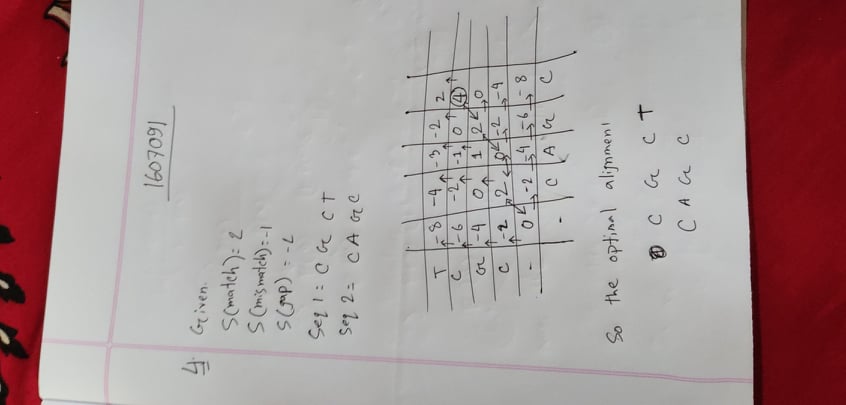 1607091
4. Given.
S(match) = 2
S(mismatch) = -1
S(gap) = -2
Seq 1 = C G C T
Seq 2 = C A G C
T -8 -4 -3 -2 2
C -6 -2 -1 0 4
G -4 0 1 2 0
C -2 2 0 -2 -4
- 0 -2 -4 -6 -8
- C A G C
So the optimal alignment
C G C T
C A G C